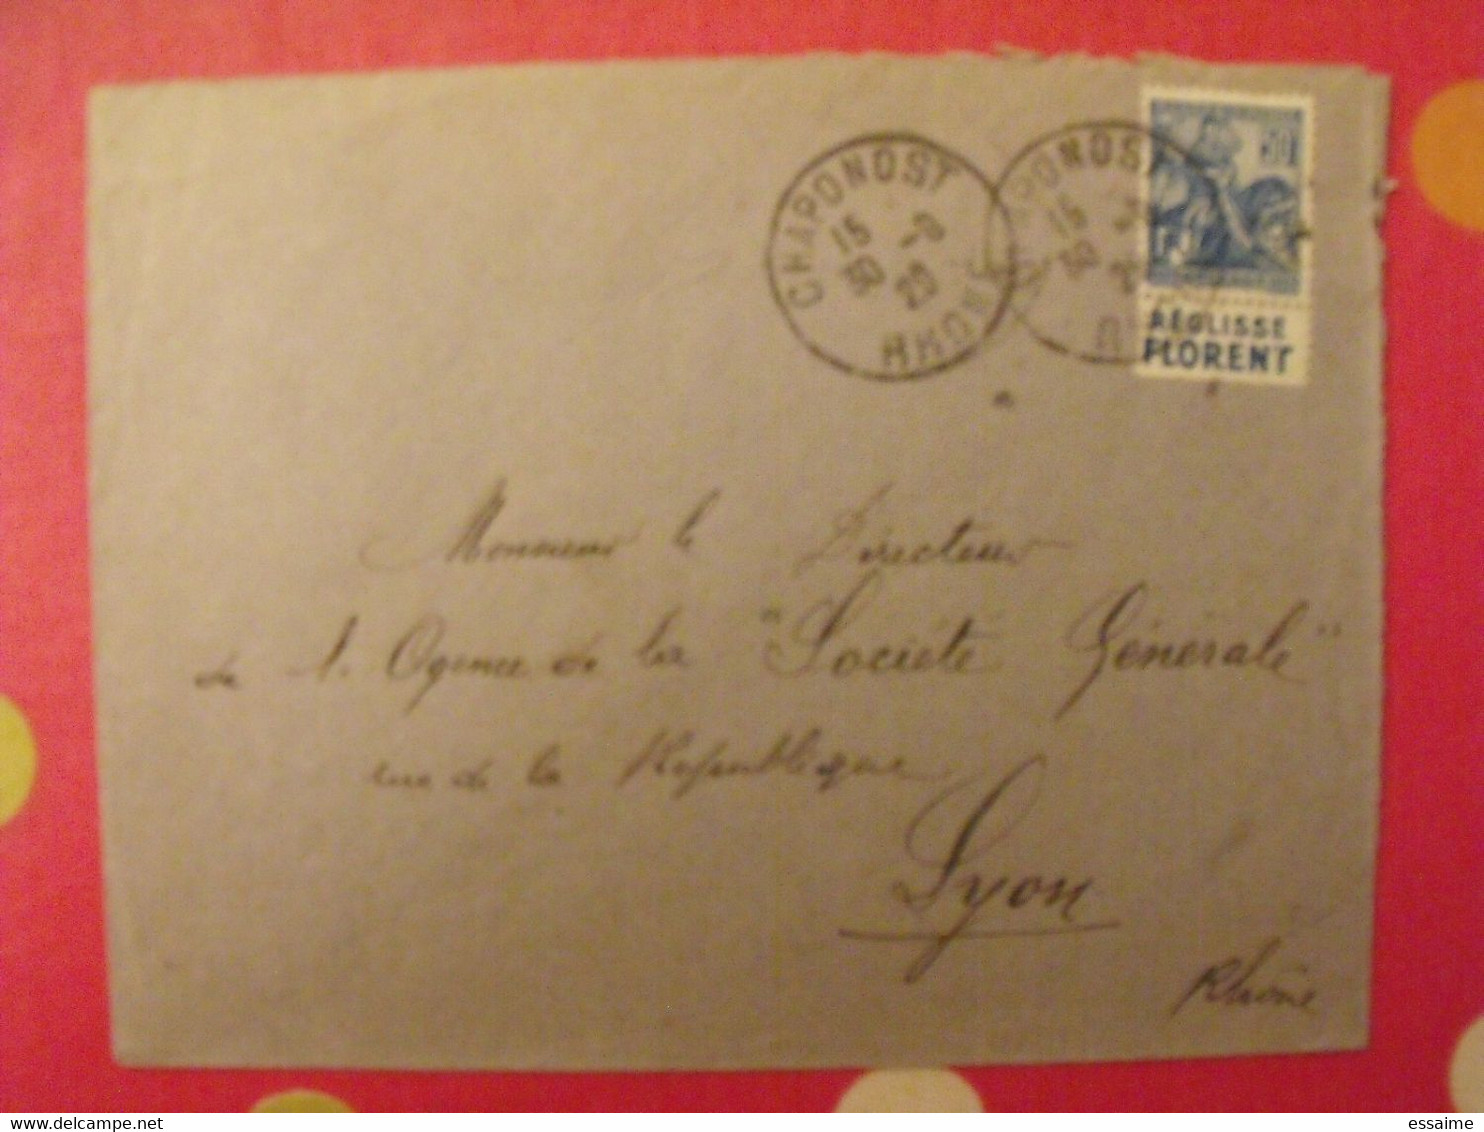 CHAPONOST
15 -9
30 29
RHONE
PONOST
15
30 2
50
RÉGLISSE
FLORENT
Monsieur le Directeur
de l'Agence de la "Société Générale"
rue de la République
Lyon
Rhône
delcampe.net
essaime